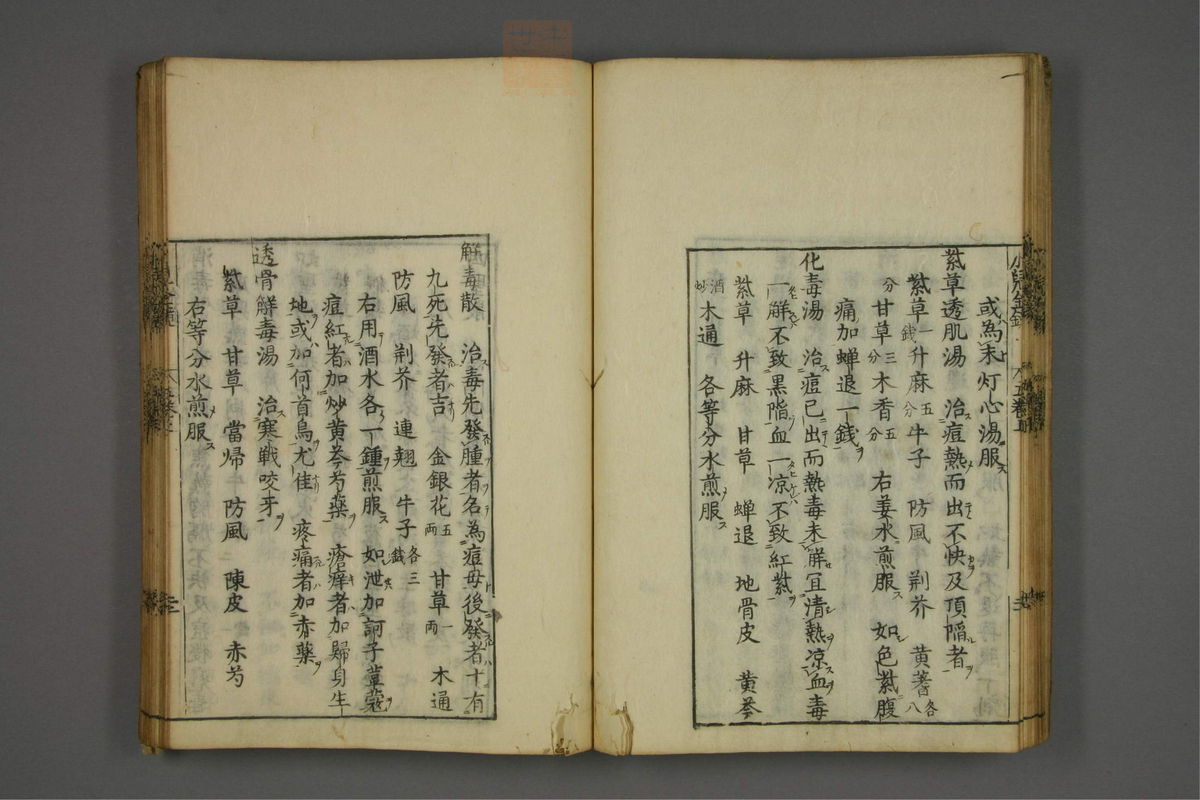 或為末灯心湯服
紫草透肌湯 治痘熱而出不快及頂陷者
紫草一錢 升麻五分 牛子 防風 荊芥 黄蓍各八
分 甘草三分 木香五分 右姜水煎服 如色紫腹
痛加蝉退一銭
化毒湯 治痘已出而熱毒未解冝清熱凉血毒
一解不致黒陷血一凉不致紅紫
紫草 升麻 甘草 蝉退 地骨皮 黄芩
酒炒 木通 各等分水煎服
解毒散 治毒先發腫者名為痘毋後發者十有
九死先發者吉 金銀花五両 甘草一両 木通
防風 荊芥 連翹 牛子各三錢
右用酒水各一鍾煎服 如泄加訶子荳蔻
痘紅者加炒黄芩芍藥 瘡癢者加歸身生
地或加何首烏尤佳 疼痛者加赤藥
透骨解毒湯 治寒戦咬牙
紫草 甘草 當帰 防風 陳皮 赤芍
右等分水煎服